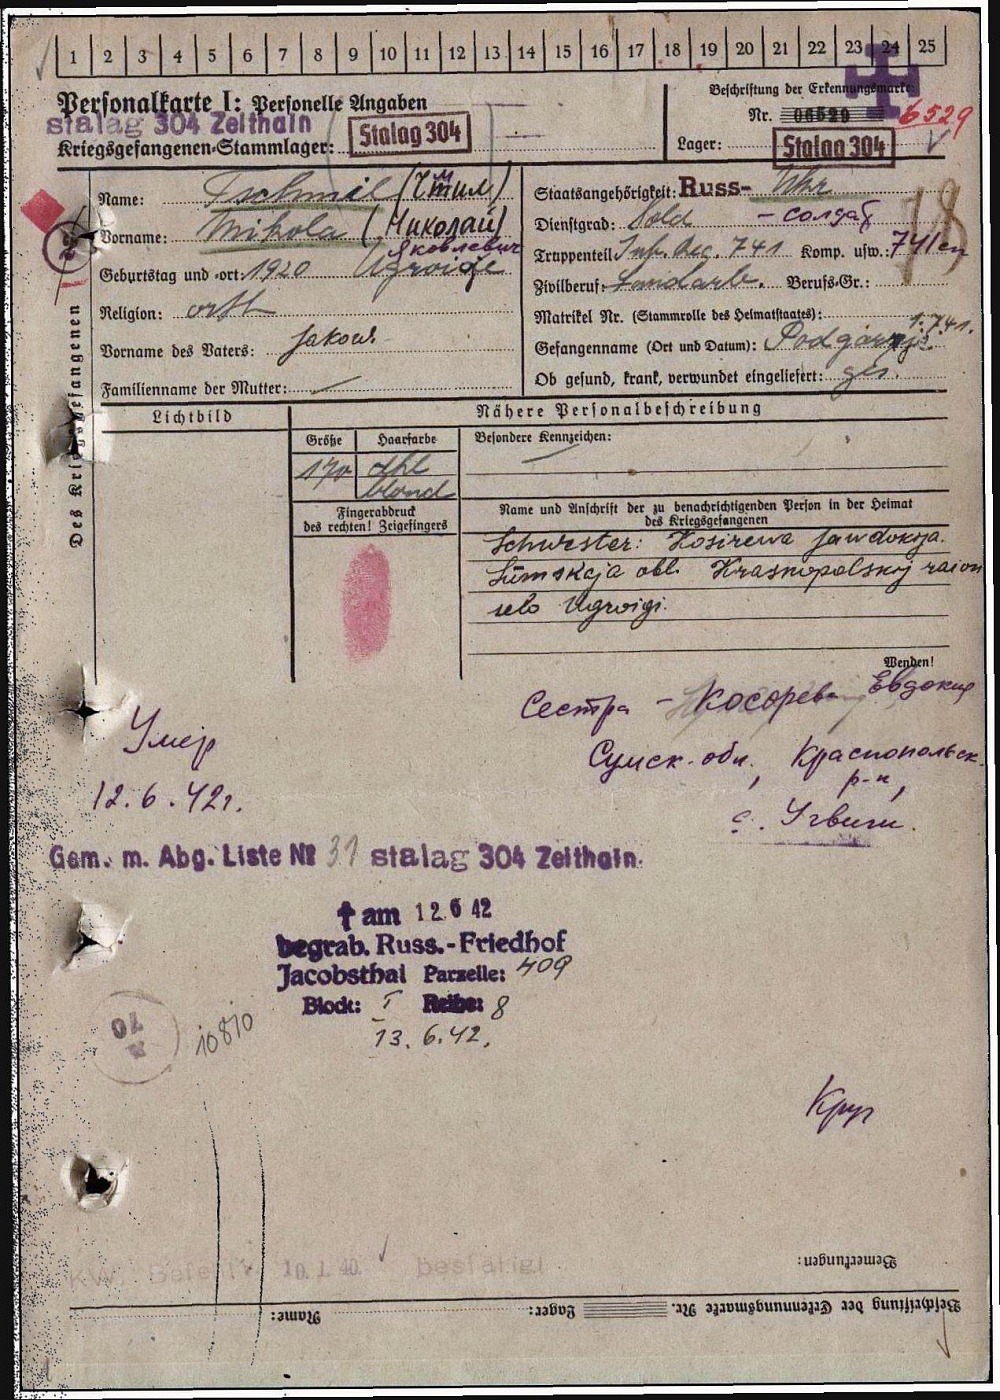 1 2 3 4 5 6 7 8 9 10 11 12 13 14 15 16 17 18 19 20 21 22 23 24 25
Personalkarte I: Personelle Angaben
stalag 304 Zeithain
Kriegsgefangenen-Stammlager: Stalag 304
Beschriftung der Erkennungsmarke
Nr. 06529 6529
Lager: Stalag 304
Des Kriegsgefangenen
Name: Tschmil (Чмил)
Vorname: Mikola (Николай)
Яковлевич
Geburtstag und -ort: 1920 Ugroide
Religion: orth
Vorname des Vaters: Jakow.
Familienname der Mutter: —
Staatsangehörigkeit: Russ- Ukr
Dienstgrad: Sold - солдат
Truppenteil: Inf. Reg. 741 Komp. usw.: 741
Zivilberuf: Landarb. Berufs-Gr.:
Matrikel Nr. (Stammrolle des Heimatstaates):
Gefangenname (Ort und Datum): Podgornoje
Ob gesund, krank, verwundet eingeliefert: ges.
Lichtbild
Nähere Personalbeschreibung
Größe Haarfarbe Besondere Kennzeichen:
170 dkl blond —
Fingerabdruck
des rechten! Zeigefingers
Name und Anschrift der zu benachrichtigenden Person in der Heimat
des Kriegsgefangenen
Schwester: Kosirewa Jawdokija.
Sumskaja obl. Krasnopolskij raion
selo Ugroigi.
Wenden!
Сестра - Косорева Евдокия
Сумск. обл., Краснопольск.
р-н,
с. Угвиги.
Умер
12.6.42г.
Gem. m. Abg. Liste № 31 stalag 304 Zeithain.
✝ am 12 6 42
begrab. Russ.-Friedhof
Jacobsthal Parzelle: 409
Block: I Reihe: 8
13. 6. 42.
70
10810
Круг
10.1.40. bestätigt
Bemerkungen:
Beschriftung der Erkennungsmarke Nr. Lager: Name: